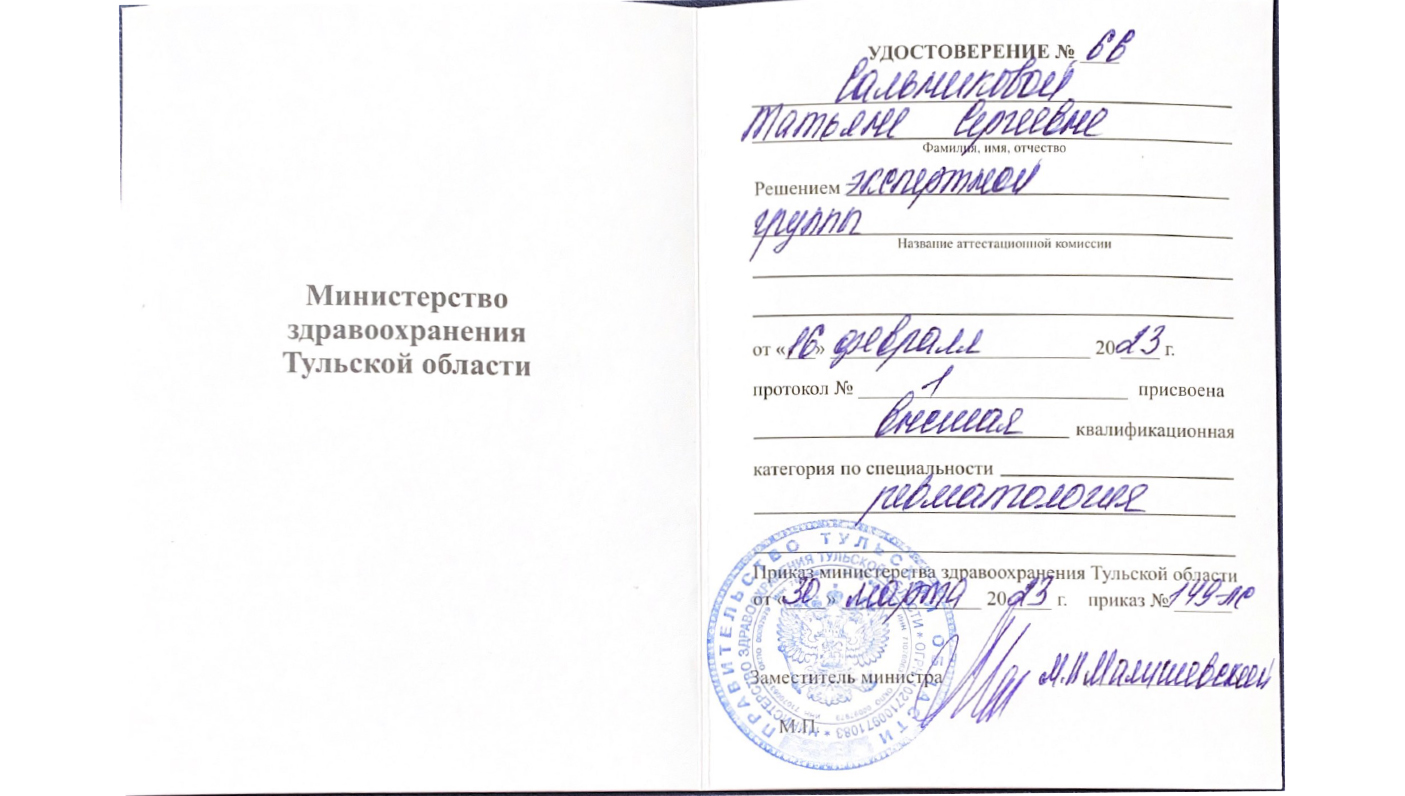 Министерство
здравоохранения
Тульской области
УДОСТОВЕРЕНИЕ № 6В
Сальниковой
Татьяне Сергеевне
Фамилия, имя, отчество
Решением экспертной
группы
Название аттестационной комиссии
от «16» февраля 2023 г.
протокол № 1 присвоена
высшая квалификационная
категория по специальности
ревматология
Приказ министерства здравоохранения Тульской области
от «30» марта 2023 г. приказ № 149-лс
Заместитель министра М.П. Малишевский
М.П.
ПРАВИТЕЛЬСТВО ТУЛЬСКОЙ ОБЛАСТИ